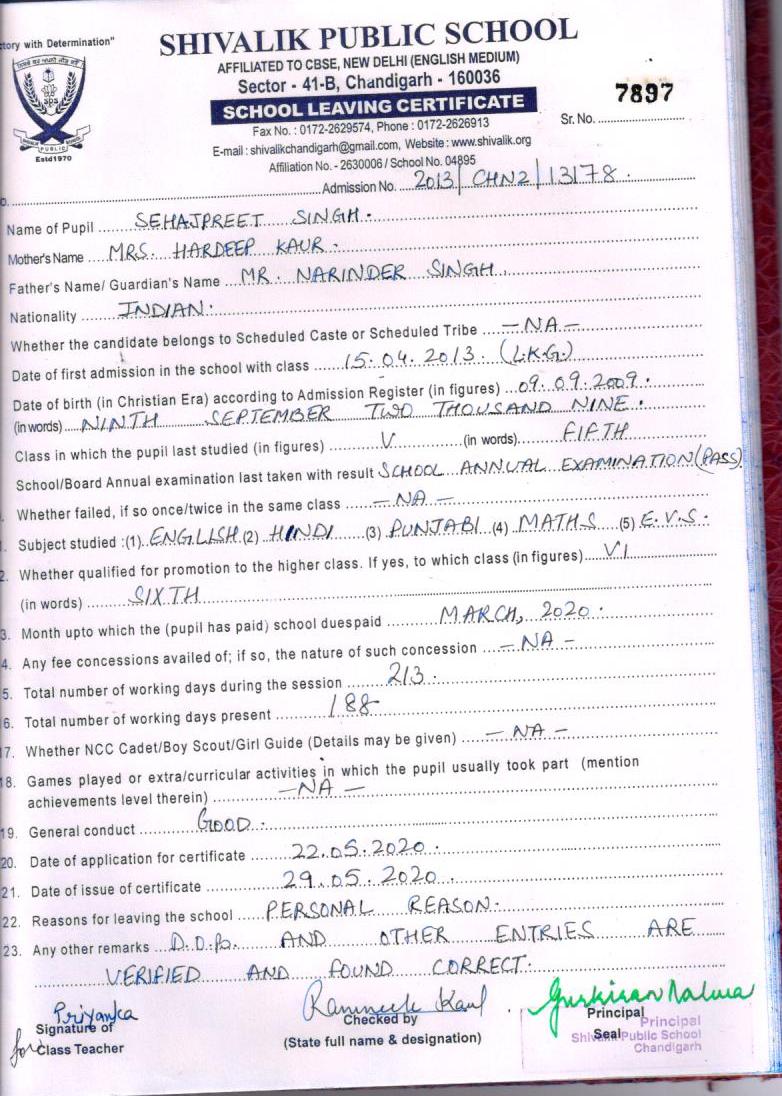 ctory with Determination"
SHIVALIK PUBLIC SCHOOL
AFFILIATED TO CBSE, NEW DELHI (ENGLISH MEDIUM)
Sector - 41-B, Chandigarh - 160036
SCHOOL LEAVING CERTIFICATE
Fax No. : 0172-2629574, Phone : 0172-2626913
E-mail : shivalikchandigarh@gmail.com, Website : www.shivalik.org
Affiliation No. - 2630006 / School No. 04895
SPS
PUBLIC
Estd1970
7897
Sr. No. ..............................
Admission No. ...2013/CHN2/13178.
Name of Pupil ...... SEHAJPREET SINGH.
Mother's Name ... MRS. HARDEEP KAUR.
Father's Name/ Guardian's Name ... MR. NARINDER SINGH
Nationality ...... INDIAN.
Whether the candidate belongs to Scheduled Caste or Scheduled Tribe ...-NA-
Date of first admission in the school with class ......15.04.2013. (L.K.G.)
Date of birth (in Christian Era) according to Admission Register (in figures) ...09.09.2009.
(in words)....NINTH SEPTEMBER TWO THOUSAND NINE.
Class in which the pupil last studied (in figures) ......V......(in words)......FIFTH
School/Board Annual examination last taken with result SCHOOL ANNUAL EXAMINATION (PASS)
Whether failed, if so once/twice in the same class ....-NA-
Subject studied :(1). ENGLISH (2) HINDI (3) PUNJABI (4) MATHS (5) E.V.S.
2. Whether qualified for promotion to the higher class. If yes, to which class (in figures)....VI
(in words) ......SIXTH
3. Month upto which the (pupil has paid) school duespaid ......MARCH, 2020.
4. Any fee concessions availed of; if so, the nature of such concession ...-NA-
5. Total number of working days during the session ......213.
6. Total number of working days present ......188
17. Whether NCC Cadet/Boy Scout/Girl Guide (Details may be given) ....-NA-
18. Games played or extra/curricular activities in which the pupil usually took part (mention
achievements level therein) ......-NA-
19. General conduct ......GOOD.
20. Date of application for certificate ......22.05.2020.
21. Date of issue of certificate ......29.05.2020.
22. Reasons for leaving the school ...PERSONAL REASON.
23. Any other remarks ..D.O.B. AND OTHER ENTRIES ARE
VERIFIED AND FOUND CORRECT.
Priyanka
Signature of
for Class Teacher
Ramneek Kaul
Checked by
(State full name & designation)
Gurkiran Nalwa
Principal
Seal
Principal
Shivalik Public School
Chandigarh